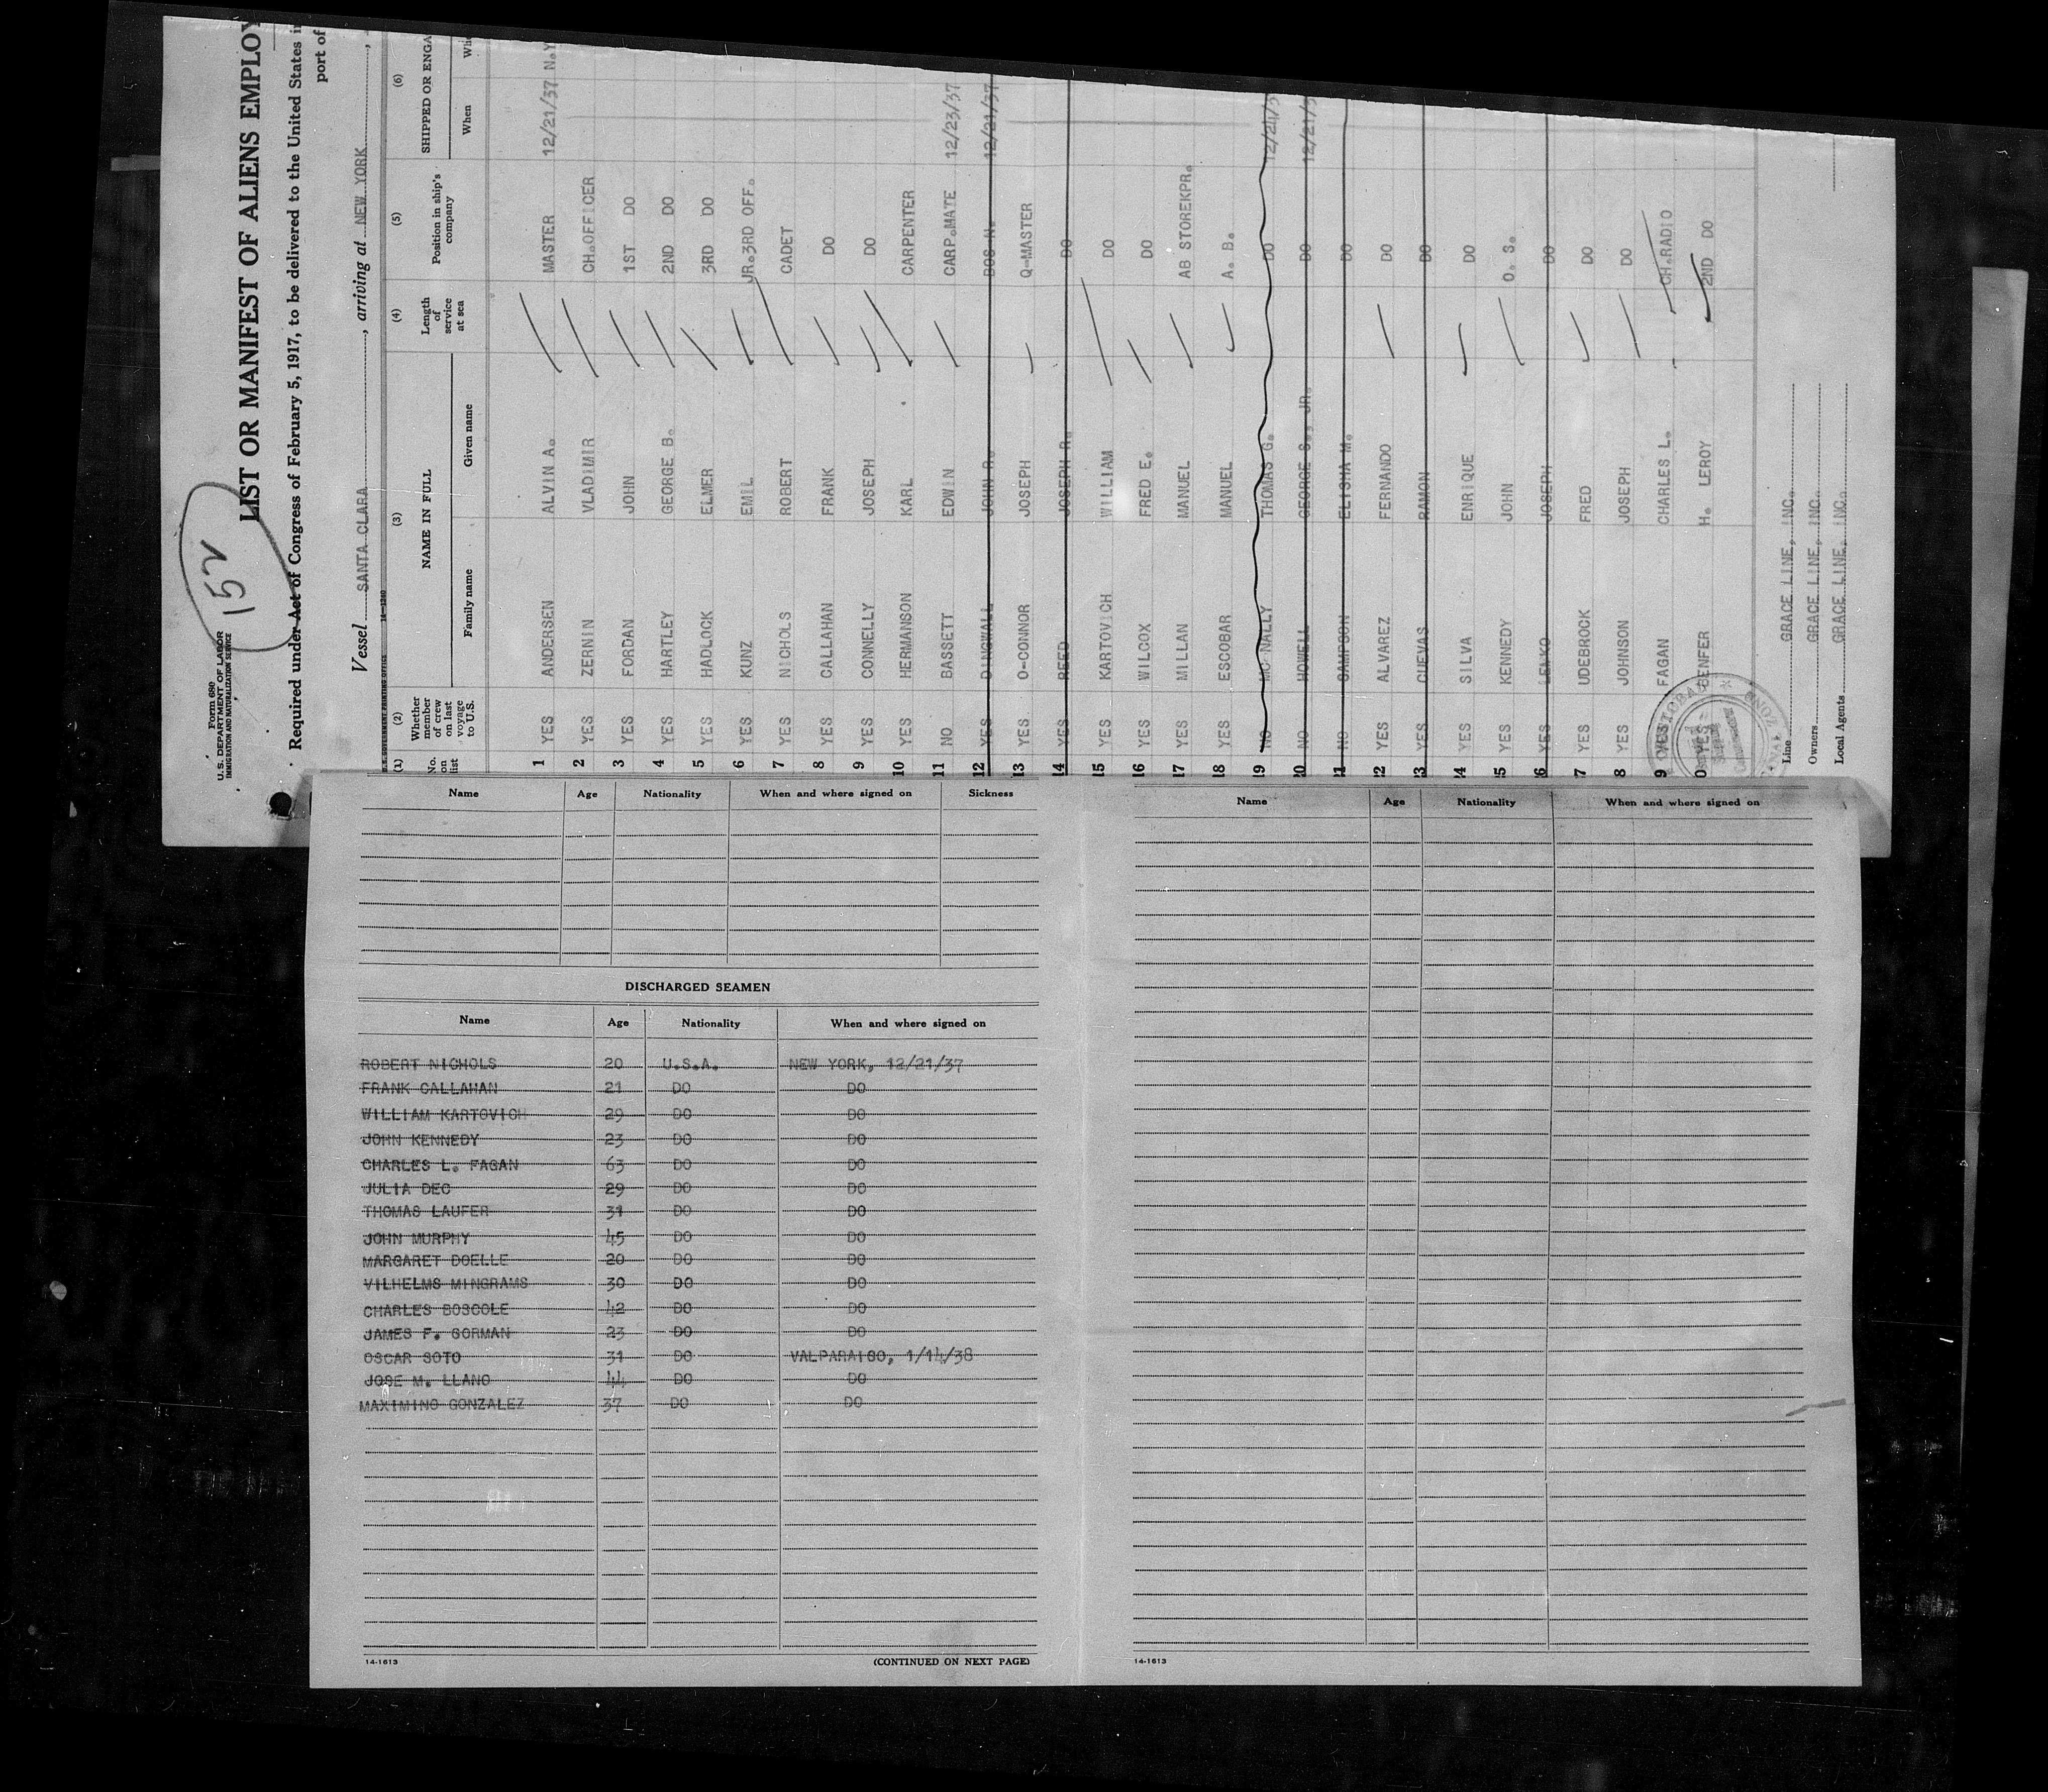 152
Form 680
U. S. DEPARTMENT OF LABOR
IMMIGRATION AND NATURALIZATION SERVICE
LIST OR MANIFEST OF ALIENS EMPLOY
Required under Act of Congress of February 5, 1917, to be delivered to the United States i
port of
Vessel SANTA CLARA, arriving at NEW YORK,
U. S. GOVERNMENT PRINTING OFFICE 14—1240
(1) (2) (3) (4) (5) (6)
No. on list Whether member of crew on last voyage to U.S. NAME IN FULL Length of service at sea Position in ship's company SHIPPED OR ENGA
Family name Given name When Whe
1 YES ANDERSEN ALVIN A. MASTER 12/21/37 N.Y
2 YES ZERNIN VLADIMIR CH.OFFICER
3 YES FORDAN JOHN 1ST DO
4 YES HARTLEY GEORGE B. 2ND DO
5 YES HADLOCK ELMER 3RD DO
6 YES KUNZ EMIL JR.3RD OFF.
7 YES NICHOLS ROBERT CADET
8 YES CALLAHAN FRANK DO
9 YES CONNELLY JOSEPH DO
10 YES HERMANSON KARL CARPENTER
11 NO BASSETT EDWIN CARP.MATE 12/23/37
12 YES DINGWALL JOHN R. BOS N. 12/21/37
13 YES O-CONNOR JOSEPH Q-MASTER
14 YES REED JOSEPH R. DO
15 YES KARTOVICH WILLIAM DO
16 YES WILCOX FRED E. DO
17 YES MILLAN MANUEL AB STOREKPR.
18 YES ESCOBAR MANUEL A. B.
19 NO MC NALLY THOMAS G. DO 12/24/3
20 NO HOWELL GEORGE S., JR. DO 12/21/3
1 NO SAMPSON ELISHA M. DO
2 YES ALVAREZ FERNANDO DO
3 YES CUEVAS RAMON DO
4 YES SILVA ENRIQUE DO
5 YES KENNEDY JOHN O. S.
6 YES LENKO JOSEPH DO
7 YES UDEBROCK FRED DO
8 YES JOHNSON JOSEPH DO
9 YES FAGAN CHARLES L. CH.RADIO
0 YES DENFER H. LEROY 2ND DO
Line GRACE LINE, INC.
Owners GRACE LINE, INC.
Local Agents GRACE LINE, INC.
Name Age Nationality When and where signed on Sickness
DISCHARGED SEAMEN
Name Age Nationality When and where signed on
ROBERT NICHOLS 20 U.S.A. NEW YORK, 12/21/37
FRANK CALLAHAN 21 DO DO
WILLIAM KARTOVICH 29 DO DO
JOHN KENNEDY 23 DO DO
CHARLES L. FAGAN 63 DO DO
JULIA DEC 29 DO DO
THOMAS LAUFER 31 DO DO
JOHN MURPHY 45 DO DO
MARGARET DOELLE 20 DO DO
VILHELMS MINGRAMS 30 DO DO
CHARLES BOSCOLE 42 DO DO
JAMES F. GORMAN 23 DO DO
OSCAR SOTO 31 DO VALPARAISO, 1/14/38
JOSE M. LLANO 44 DO DO
MAXIMINO GONZALEZ 37 DO DO
14-1613
(CONTINUED ON NEXT PAGE)
Name Age Nationality When and where signed on
14-1613